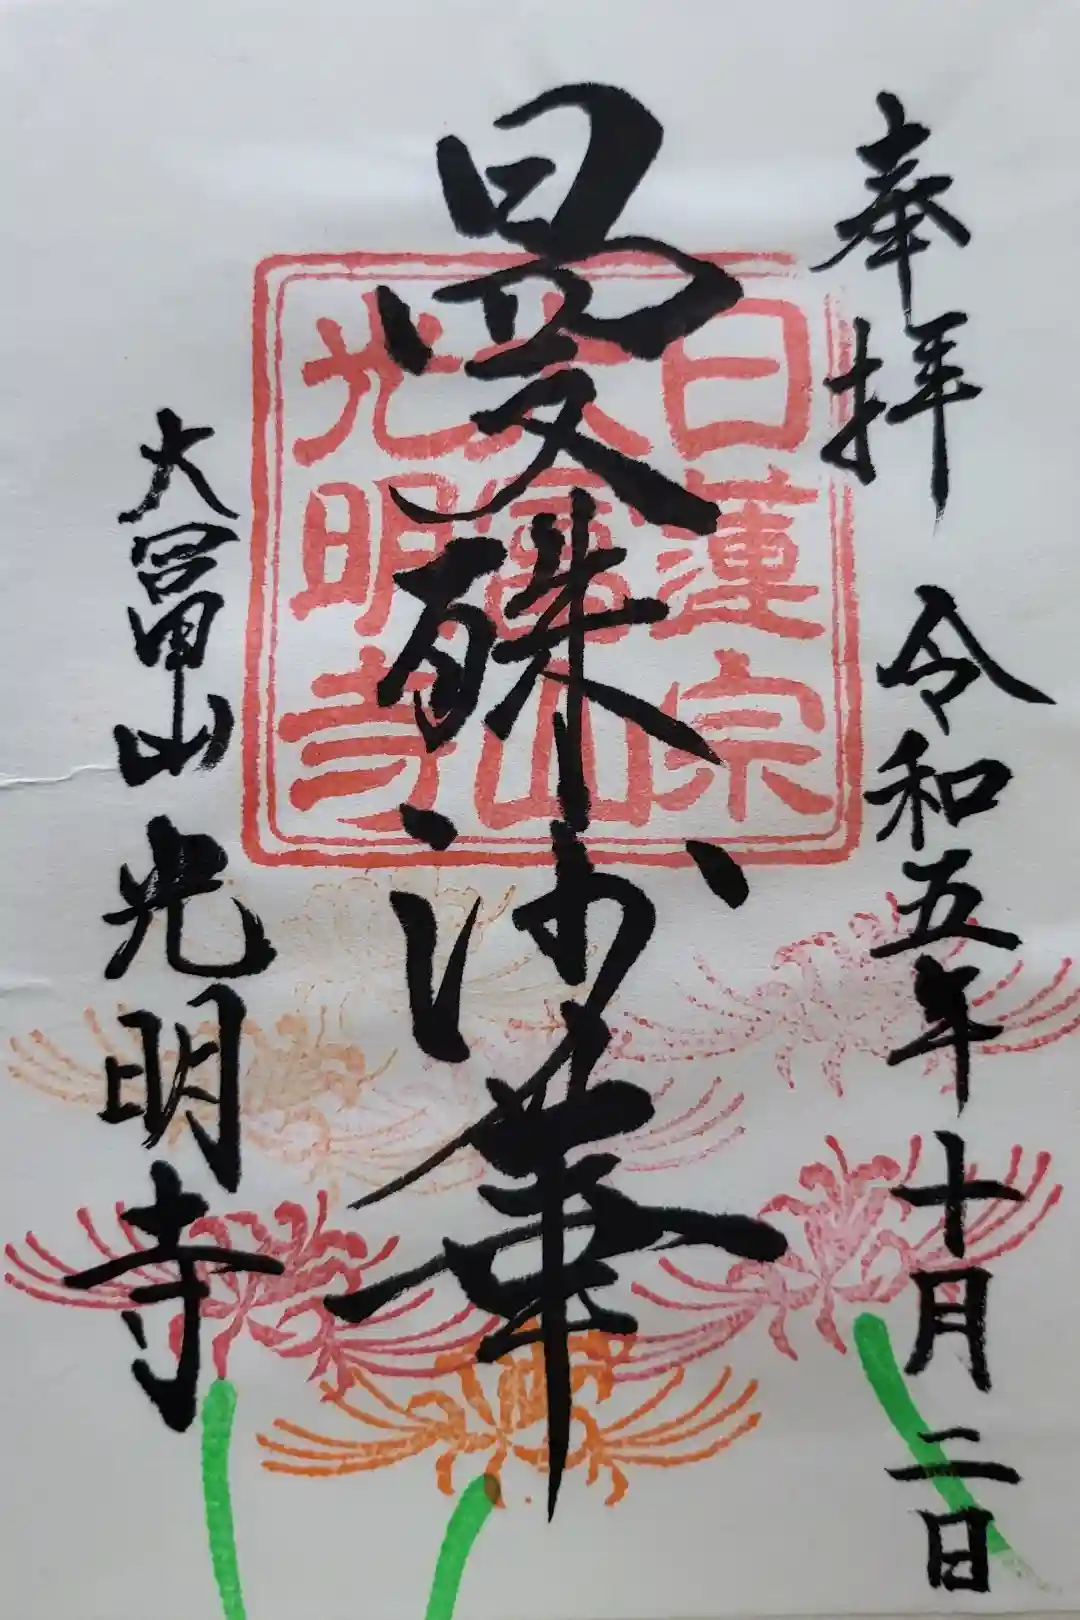 奉拝 令和五年十月二日
曼殊沙華
大富山光明寺
日蓮宗
大富山
光明寺